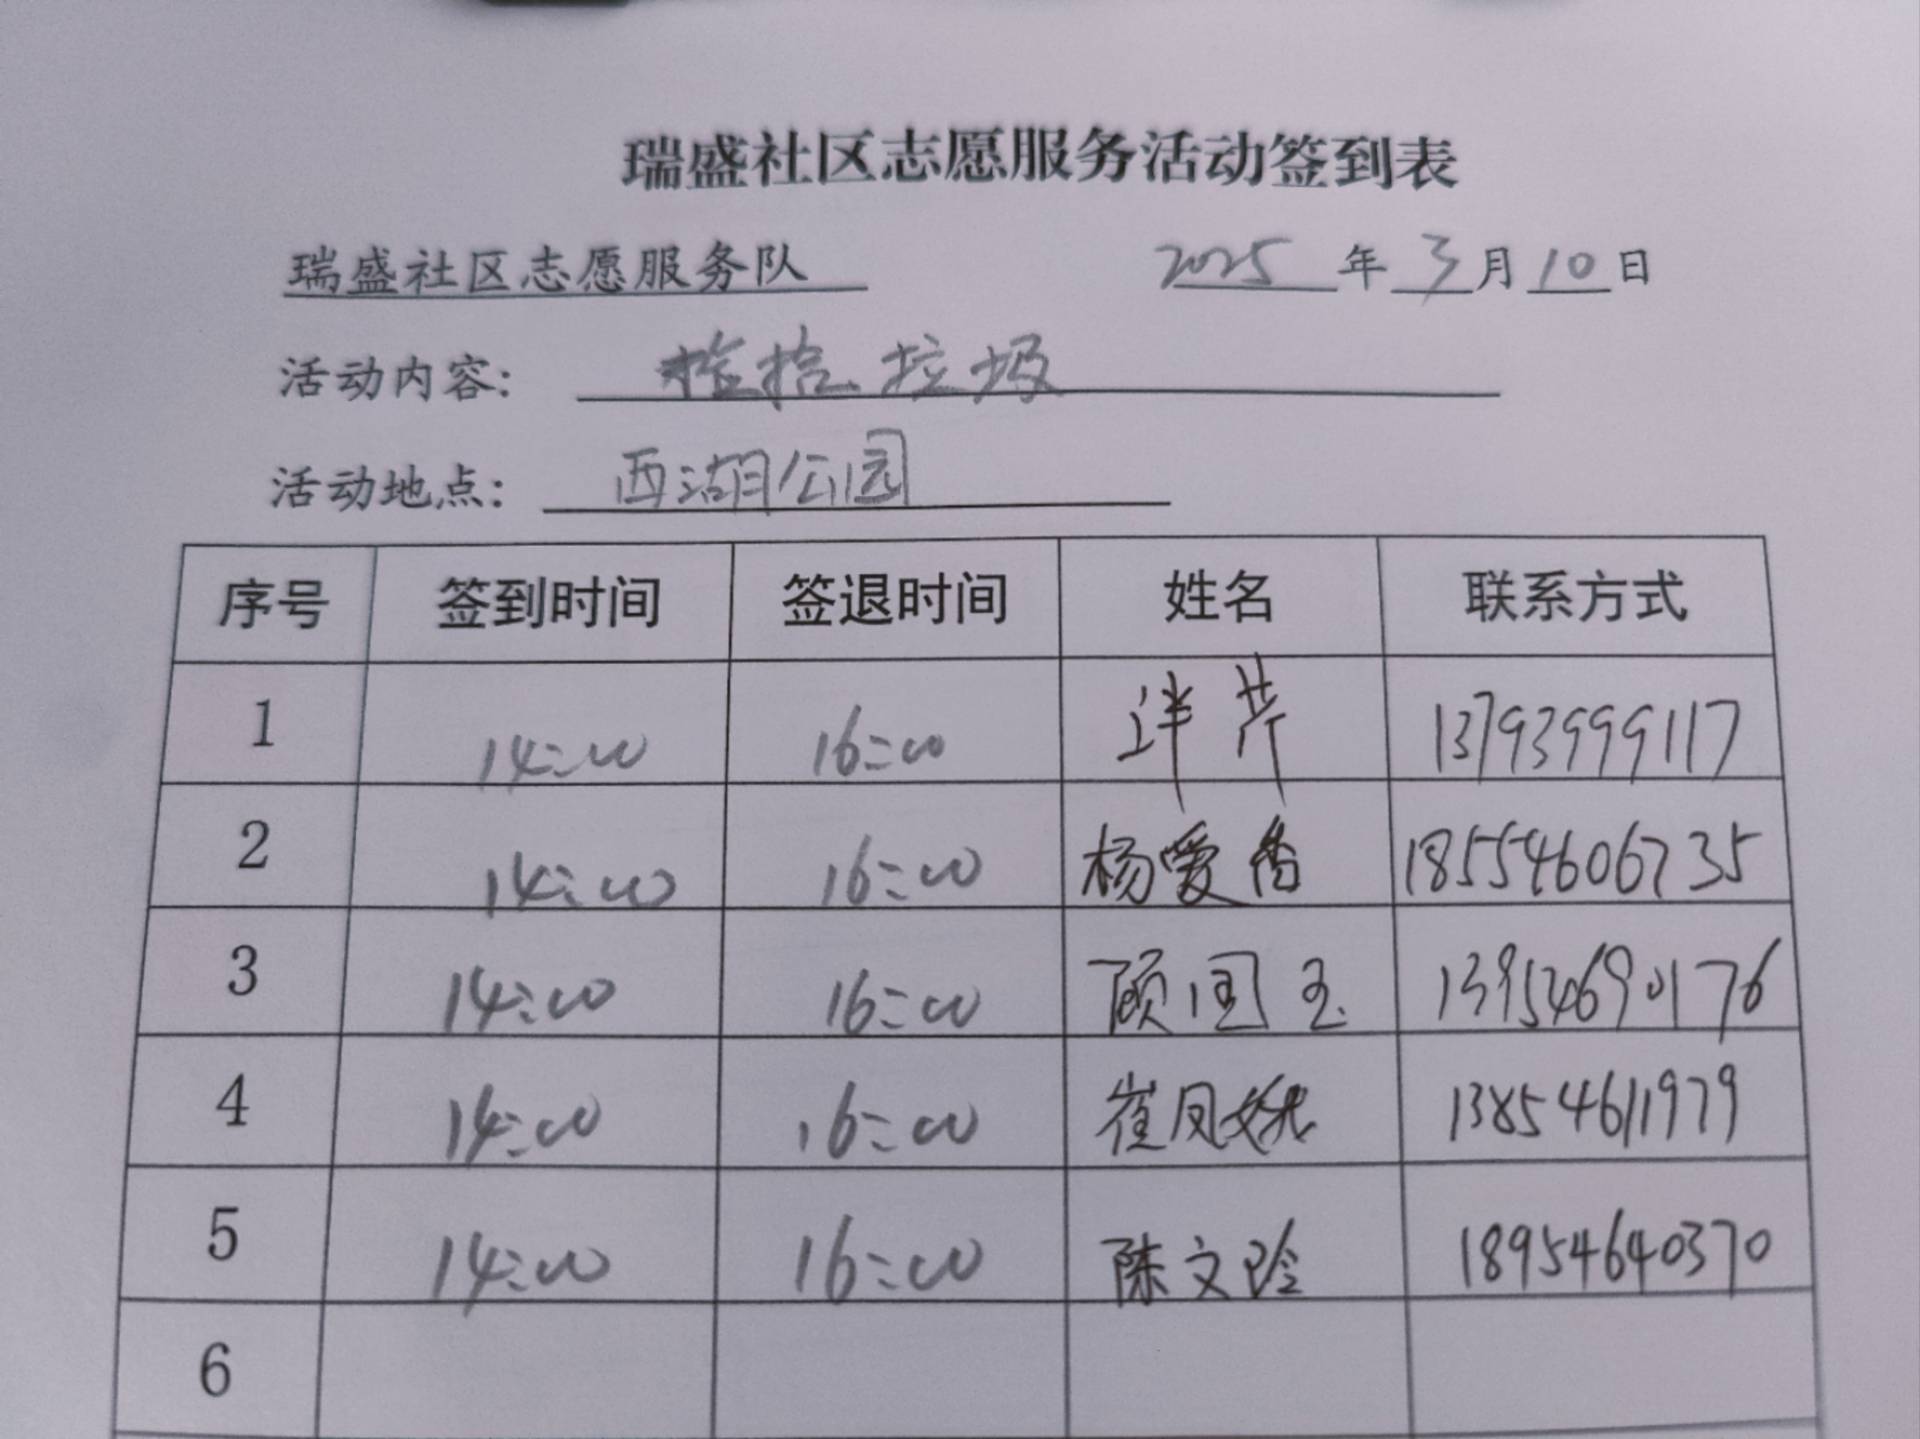 瑞盛社区志愿服务活动签到表
瑞盛社区志愿服务队 2025年3月10日
活动内容: 检拾垃圾
活动地点: 西湖公园
序号 签到时间 签退时间 姓名 联系方式
1 14:00 16:00 芹 13793999117
2 14:00 16:00 杨爱香 18554606735
3 14:00 16:00 顾国玉 13954690176
4 14:00 16:00 崔凤 13854611979
5 14:00 16:00 陈文玲 18954640370
6